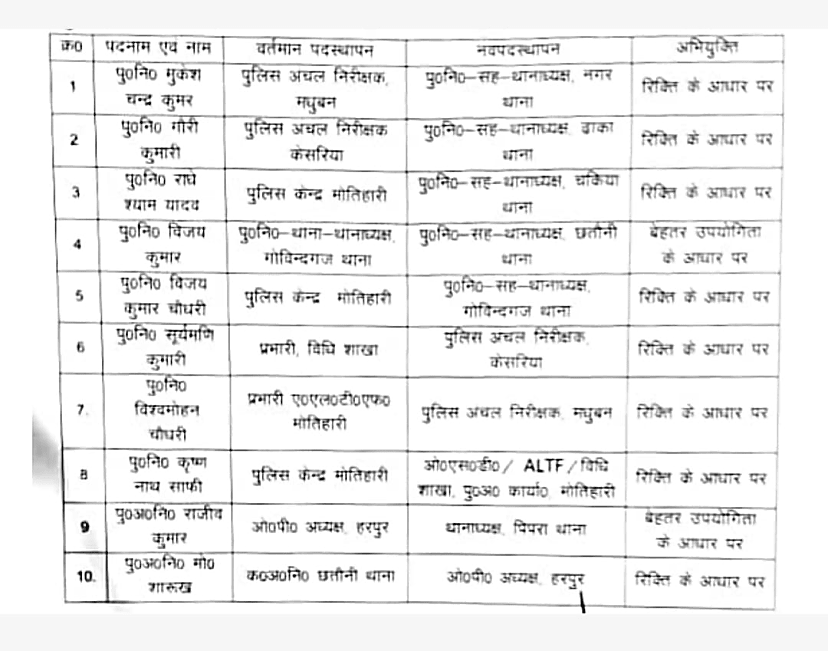 क्र0 पदनाम एवं नाम वर्तमान पदस्थापन नवपदस्थापन अभियुक्ति
1 पु0नि0 मुकेश चन्द्र कुमर पुलिस अचल निरीक्षक, मधुबन पु0नि0-सह-थानाध्यक्ष, नगर थाना रिक्ति के आधार पर
2 पु0नि0 गौरी कुमारी पुलिस अचल निरीक्षक केसरिया पु0नि0-सह-थानाध्यक्ष, ढाका थाना रिक्ति के आधार पर
3 पु0नि0 राधे श्याम यादव पुलिस केन्द्र मोतिहारी पु0नि0-सह-थानाध्यक्ष, चकिया थाना रिक्ति के आधार पर
4 पु0नि0 विजय कुमार पु0नि0-थाना-थानाध्यक्ष, गोविन्दगज थाना पु0नि0-सह-थानाध्यक्ष, छतौनी थाना बेहतर उपयोगिता के आधार पर
5 पु0नि0 विजय कुमार चौधरी पुलिस केन्द्र मोतिहारी पु0नि0-सह-थानाध्यक्ष, गोविन्दगज थाना रिक्ति के आधार पर
6 पु0नि0 सूर्यमणि कुमारी प्रभारी, विधि शाखा पुलिस अचल निरीक्षक, केसरिया रिक्ति के आधार पर
7. पु0नि0 विश्वमोहन चौधरी प्रभारी ए0एल0टी0एफ0 मोतिहारी पुलिस अचल निरीक्षक, मधुबन रिक्ति के आधार पर
8 पु0नि0 कृष्ण नाथ साफी पुलिस केन्द्र मोतिहारी ओ0एस0डी0/ ALTF/विधि शाखा, पु0अ0 कार्या0, मोतिहारी रिक्ति के आधार पर
9 पु0अ0नि0 राजीव कुमार ओ0पी0 अध्यक्ष, हरपुर थानाध्यक्ष, पिपरा थाना बेहतर उपयोगिता के आधार पर
10. पु0अ0नि0 मो0 शारूख क0अ0नि0 छतौनी थाना ओ0पी0 अध्यक्ष, हरपुर रिक्ति के आधार पर